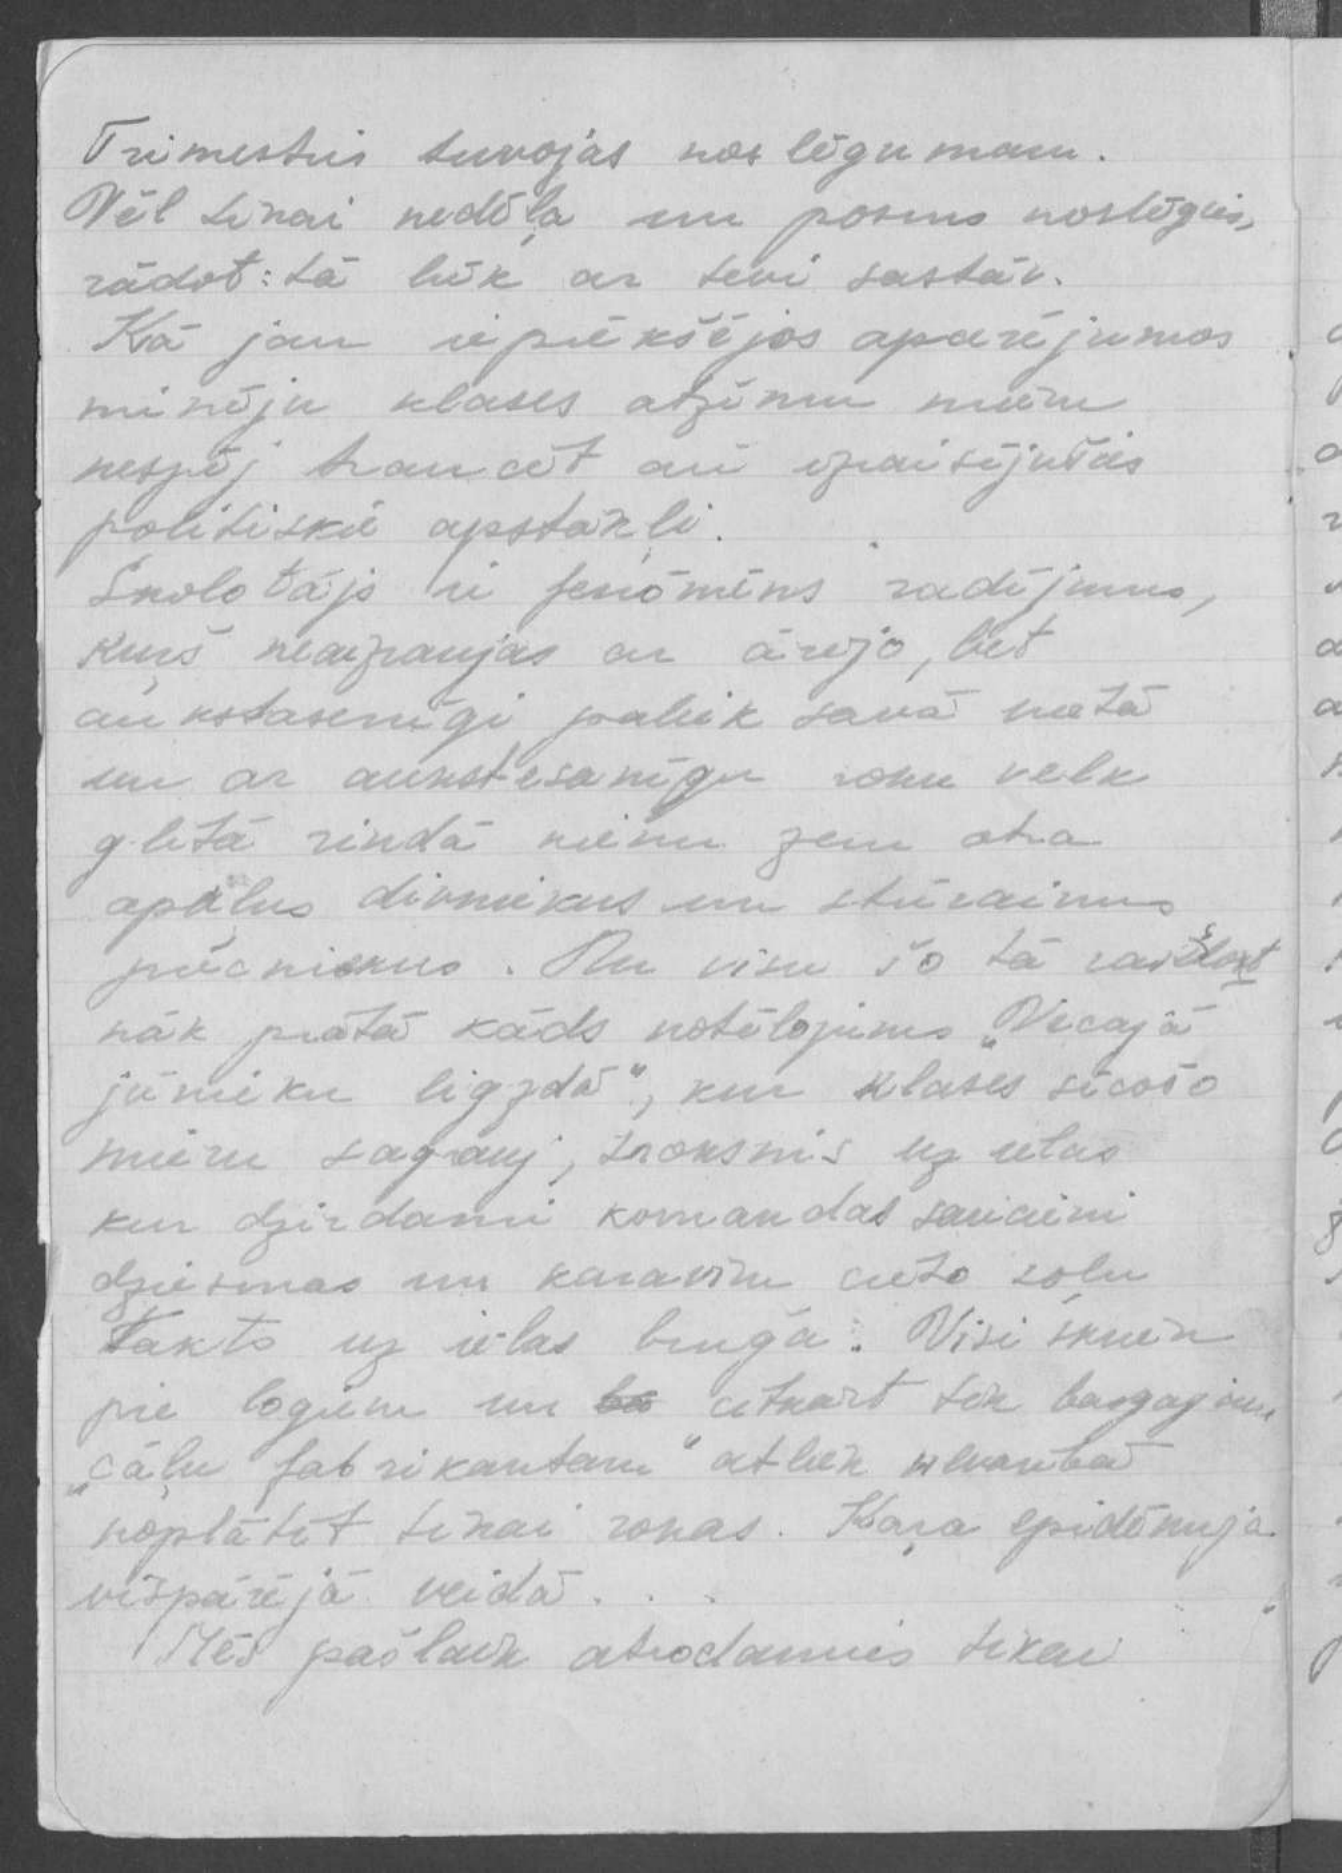 Trimestris tuvojas noslēgumam.
Vēl tikai nedēļa un posms noslēgsies,
rādot: tā lūk ar tevi sastāv.
Kā jau iepriekšējos apcerējumos
minēju klases atzīmju mieru
nespēj traucēt arī izraisījušies
politiskie apstākļi.
Skolotājs ir fenōmēns radījums,
kurš neaizraujas ar ārējo, bet
aukstasinīgi paliek savā vietā
un ar aukstesanīgu roku velk
glītā rindā vienu zem otra
apaļus divniekus un stūrainus
piecniekus. Nu visu šo tā
nāk prātā kāds notēlojums „Vecajā
jūrnieku ligzdā", kur klases sīcošo
mieru sagrauj, troksnis uz ielas
kur dzirdami komandas saucieni
dziesmas un karavīru cieto soļu
takts uz ielas bruģa. Visi skrien
pie logiem un citkārt tik bargajam
„cāļu fabrikantam" atliek
noplātīt tikai rokas. Kara epidēmija
vispārējā veidā. . .
Mēs pašlaik atrodamies tikai